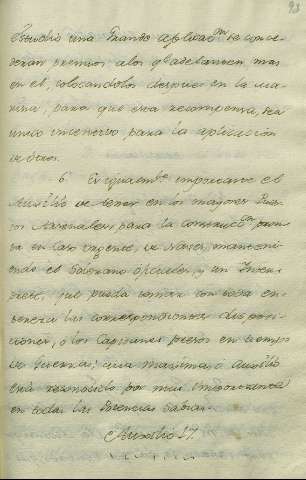 93
estudio una grande aplicacn. se conce-
deran premios a los qe. adelanten mas
en el, colocandolos despues en la Ma-
rina, para que esta recompensa, sea
nuevo incentivo para la aplicacion
de otros.
6. Es igualmte. importante el
Auxilio de tener en los mayores Puer-
tos Nazionales, para la construccn. pron-
ta en caso urgente, de Naves, mantenien-
do el Soberano Oficiales, y un Inten-
dente, que pueda tomar con toda en-
tereza las correspondientes disposi-
ciones, o los Capitanes puestos en tiempo
de Guerra; cuia maxima, o Auxilio
está reconocido por mui importante
en todas las Potencias Sabias.
Auxilio 17.